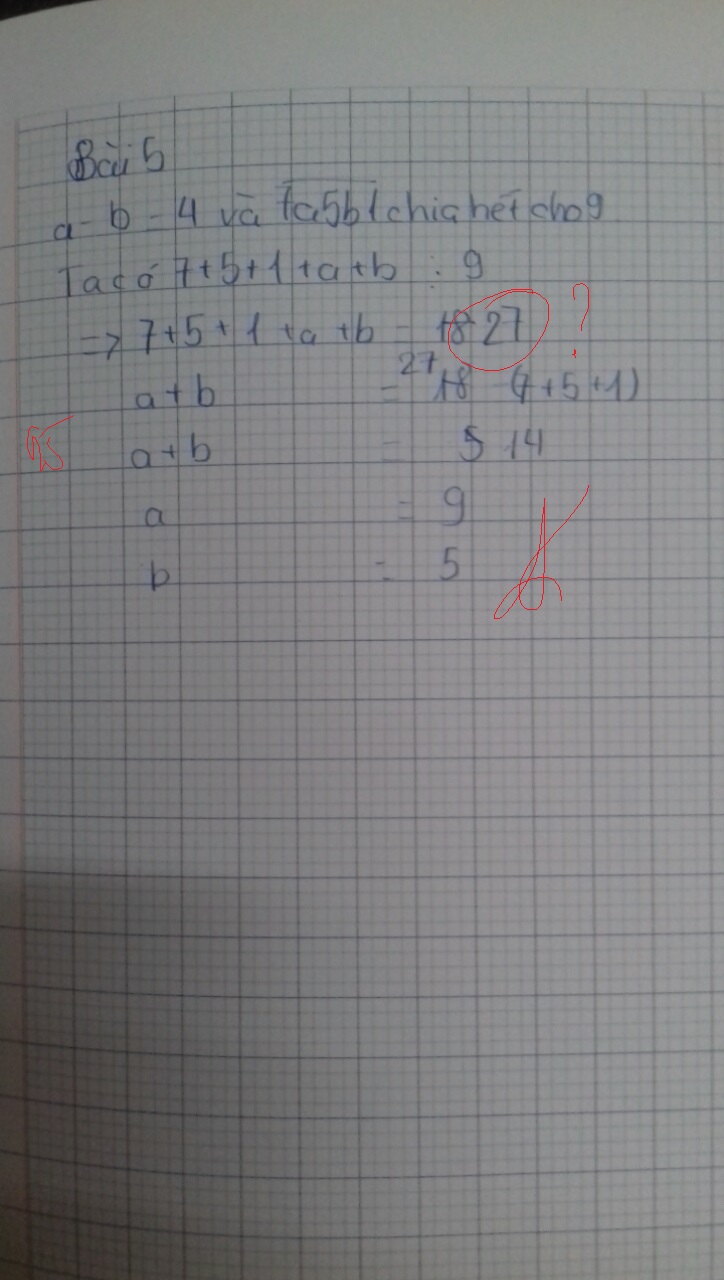 Bài 5
a - b = 4 và 7a5b1 chia hết cho 9
Ta có 7+5+1+a+b : 9
=> 7+5+1+a+b = 18 27 ?
a+b = 27 18 (7+5+1)
a+b = 5 14
a = 9
b = 5